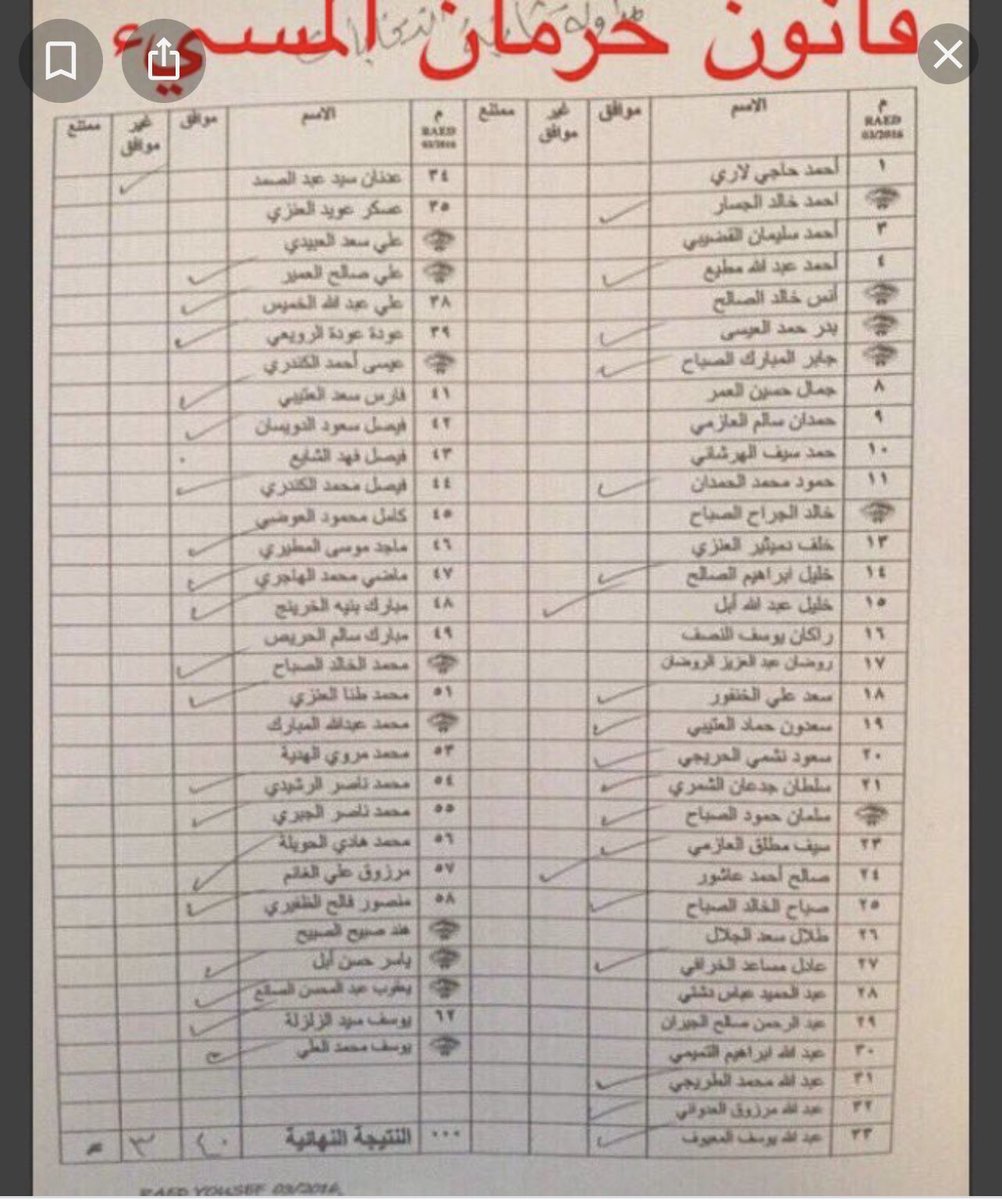 قانون حرمان المسيء
م RAED 03/2016 الاسم موافق غير موافق ممتنع
١ أحمد حاجي لاري
احمد خالد الجسار ✓
٣ أحمد سليمان القضيبي
٤ أحمد عبد الله مطيع ✓
أنس خالد الصالح
بدر حمد العيسى ✓
جابر المبارك الصباح ✓
٨ جمال حسين العمر
٩ حمدان سالم العازمي
١٠ حمد سيف الهرشاني
١١ حمود محمد الحمدان ✓
خالد الجراح الصباح
١٣ خلف دميثير العنزي
١٤ خليل ابراهيم الصالح ✓
١٥ خليل عبد الله أبل ✓
١٦ راكان يوسف النصف
١٧ روضان عبد العزيز الروضان
١٨ سعد علي الخنفور ✓
١٩ سعدون حماد العتيبي ✓
٢٠ سعود نشمي الحريجي ✓
٢١ سلطان جدعان الشمري ✓
سلمان حمود الصباح ✓
٢٣ سيف مطلق العازمي ✓
٢٤ صالح أحمد عاشور ✓
٢٥ صباح الخالد الصباح ✓
٢٦ طلال سعد الجلال
٢٧ عادل مساعد الخرافي ✓
٢٨ عبد الحميد عباس دشتي
٢٩ عبد الرحمن صالح الجيران
٣٠ عبد الله ابراهيم التميمي
٣١ عبد الله محمد الطريجي ✓
٣٢ عبد الله مرزوق العدواني ✓
٣٣ عبد الله يوسف المعيوف ✓
م RAED 03/2016 الاسم موافق غير موافق ممتنع
٣٤ عدنان سيد عبد الصمد ✓
٣٥ عسكر عويد العنزي
علي سعد العبيدي
علي صالح العمير ✓
٣٨ علي عبد الله الخميس ✓
٣٩ عودة عودة الرويعي ✓
عيسى أحمد الكندري
٤١ فارس سعد العتيبي ✓
٤٢ فيصل سعود الدويسان ✓
٤٣ فيصل فهد الشايع
٤٤ فيصل محمد الكندري ✓
٤٥ كامل محمود العوضي
٤٦ ماجد موسى المطيري ✓
٤٧ ماضي محمد الهاجري ✓
٤٨ مبارك بنيه الخرينج ✓
٤٩ مبارك سالم الحريص
محمد الخالد الصباح ✓
٥١ محمد طنا العنزي ✓
محمد عبدالله المبارك
٥٣ محمد مروي الهدية
٥٤ محمد ناصر الرشيدي ✓
٥٥ محمد ناصر الجبري ✓
٥٦ محمد هادي الحويلة
٥٧ مرزوق علي الغانم ✓
٥٨ منصور فالح الظفيري ✓
هند صبيح الصبيح
ياسر حسن أبل ✓
يعقوب عبد المحسن الصانع ✓
٦٢ يوسف سيد الزلزلة ✓
يوسف محمد العلي
٠٠٠ النتيجة النهائية ٤٠ ٣
RAED YOUSEF 03/2016